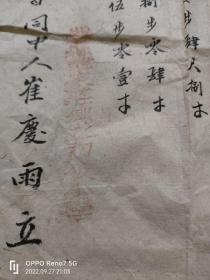 步肆尺捌寸
捌步零肆寸
伍步零壹寸
同中人崔慶雨立
OPPO Reno7 5G
2022.09.27 21:08